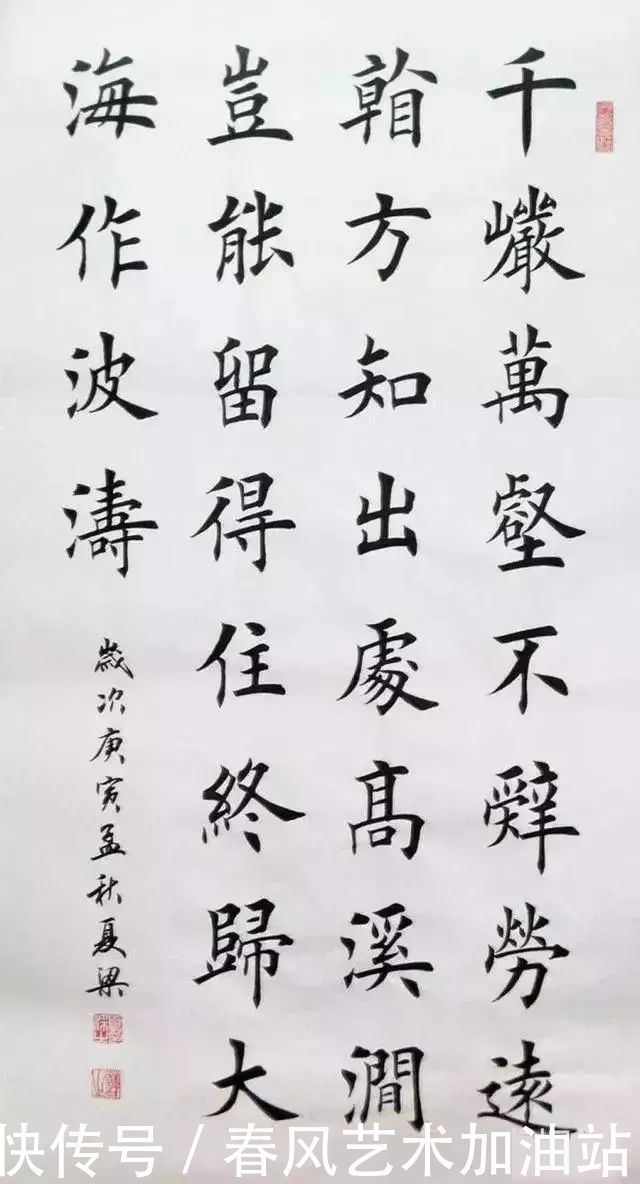 千巖萬壑不辭勞遠
看方知出處高溪澗
豈能留得住終歸大
海作波濤
歲次庚寅孟秋夏梁
快传号 / 春风艺术加油站